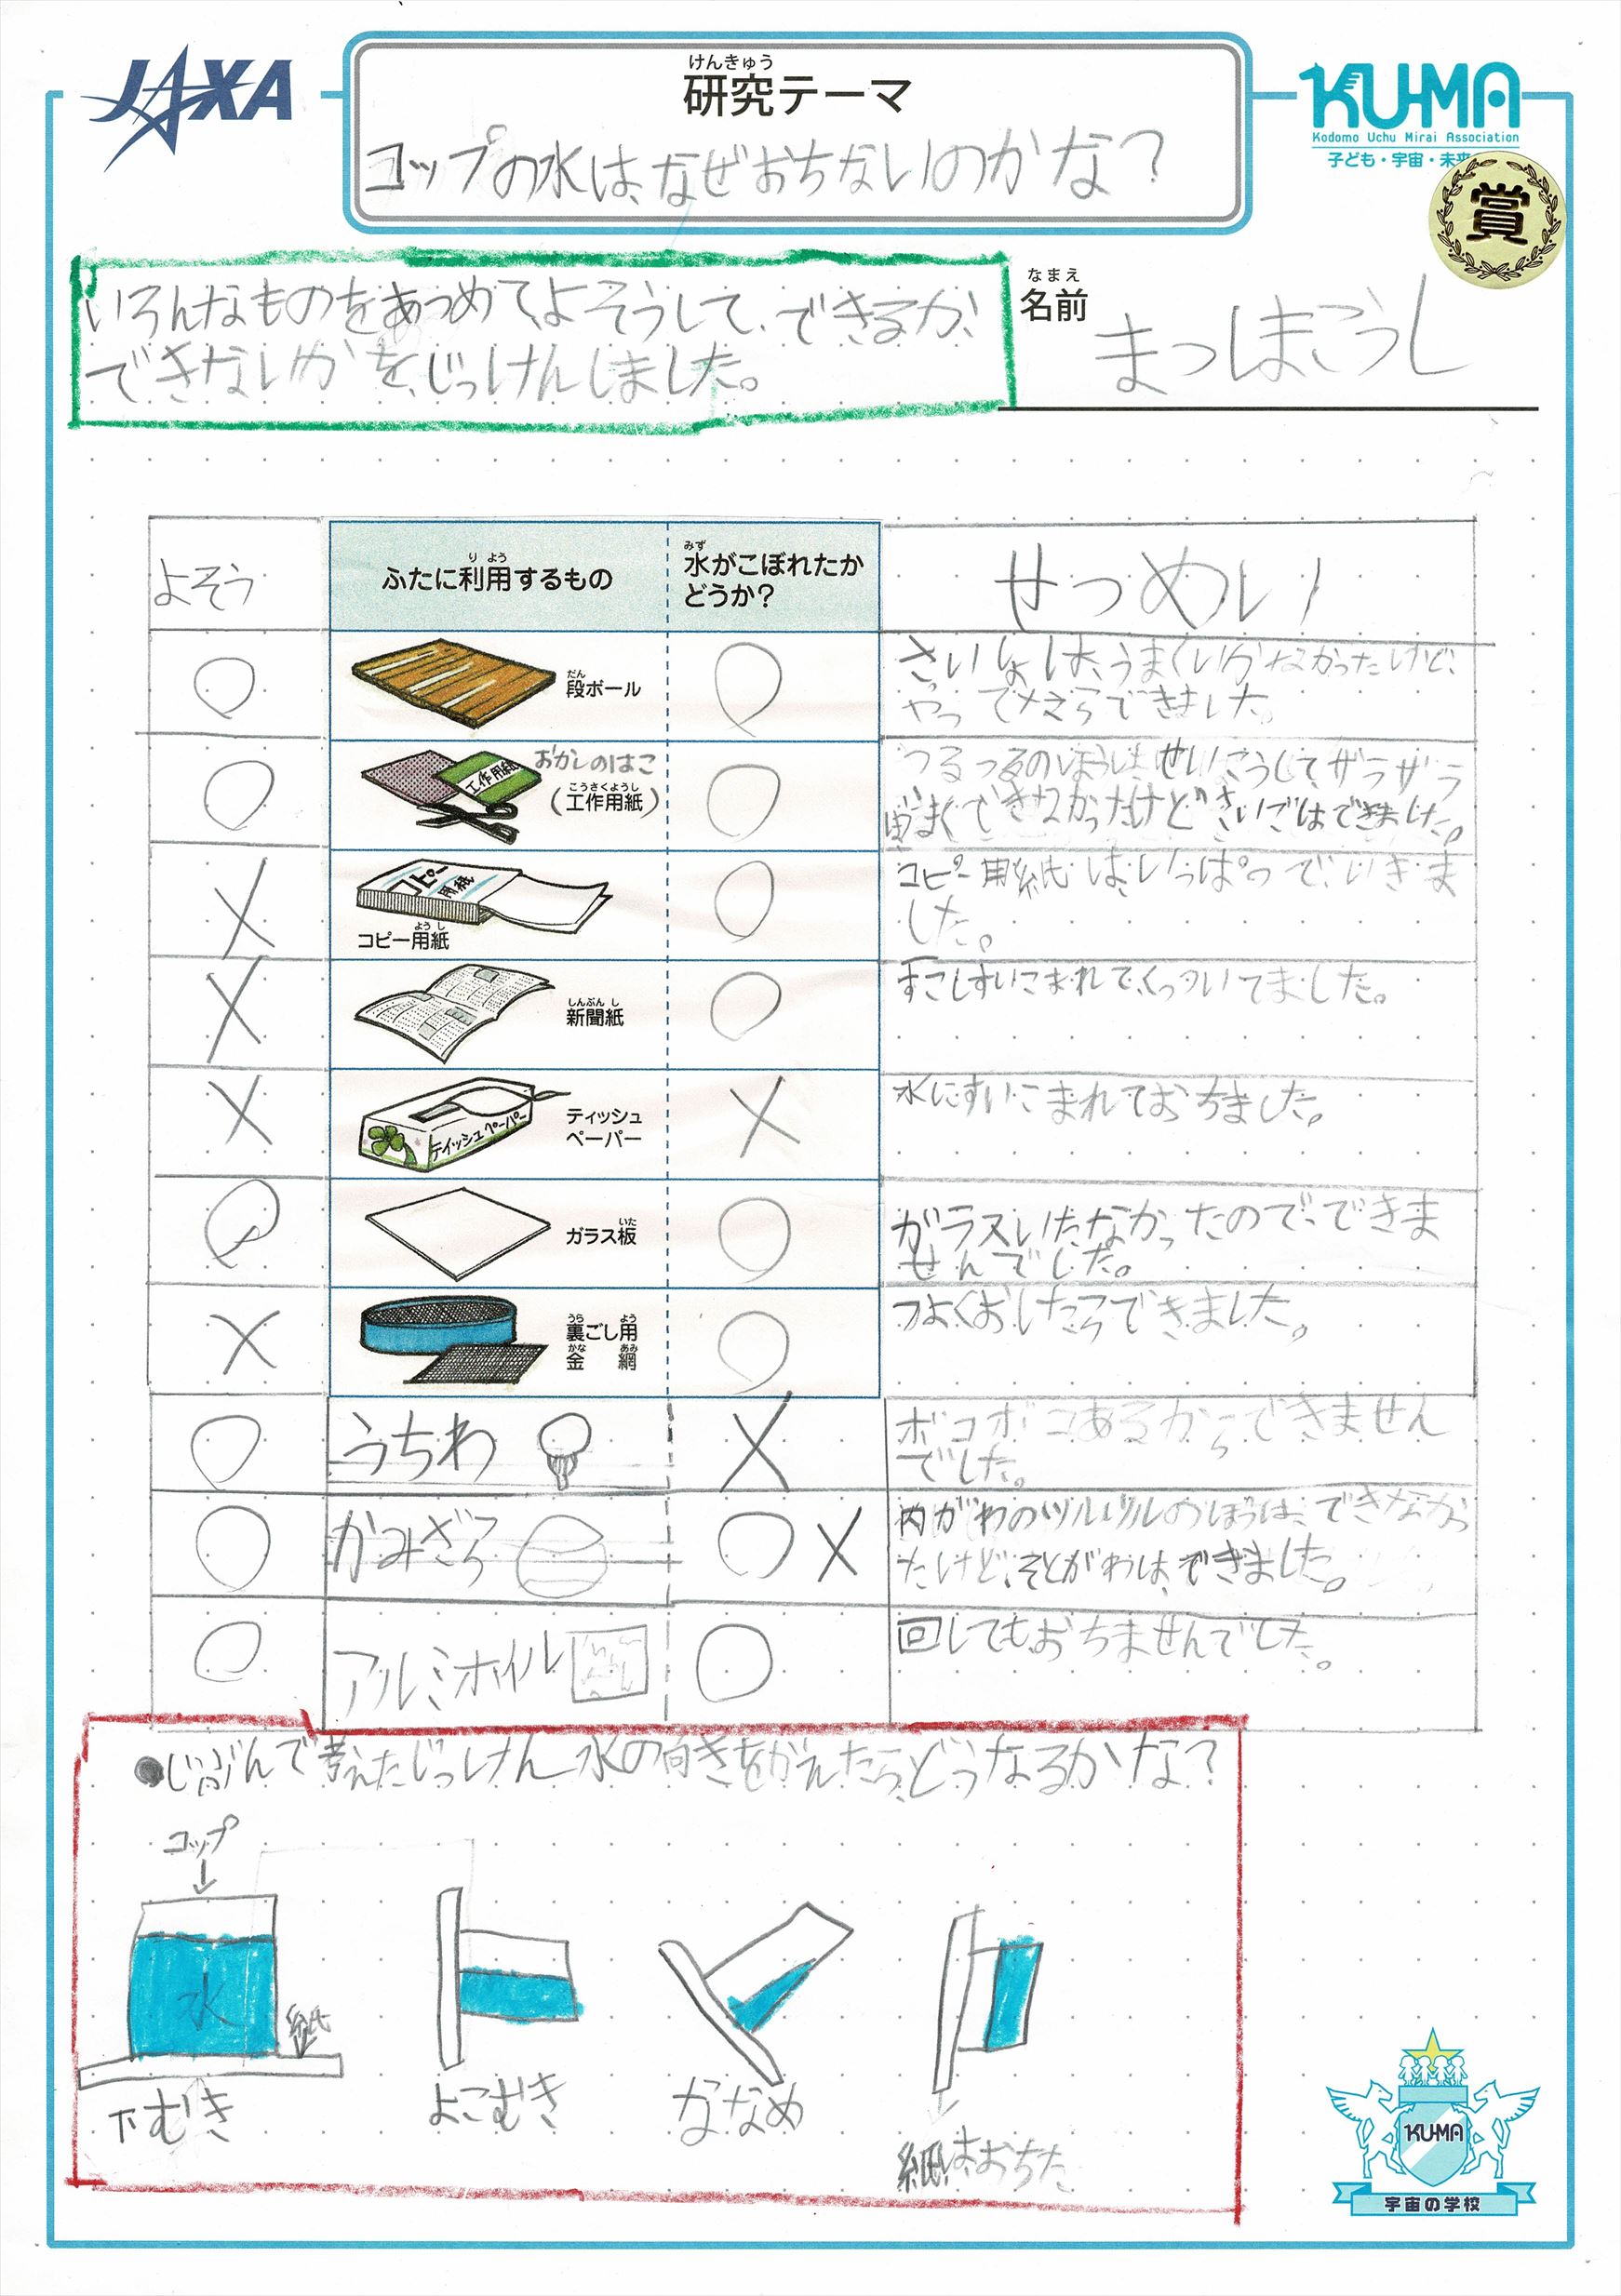 JAXA
けんきゅう
研究テーマ
コップの水は、なぜおちないのかな？
KUMA
Kodomo Uchu Mirai Association
子ども・宇宙・未来
賞
いろんなものをあつめて、よそうして、できるか、
できないかを、じっけんしました。
なまえ
名前
まつばこうし
よそう
りよう
ふたに利用するもの
みず
水がこぼれたか
どうか？
せつめい
○
だん
段ボール
○
さいしょは、うまくいかなかったけど、
やってたらできました。
○
工作用紙
おかしのはこ
こうさくようし
（工作用紙）
○
つるつるのほうはせいこうして、ザラザラ
うまくできなかったけどさいごはできました。
×
コピー用紙
ようし
コピー用紙
○
コピー用紙は、いっぱつで、いきま
した。
×
しんぶんし
新聞紙
○
すこしすいこまれて、くっついてました。
×
ティッシュペーパー
ティッシュ
ペーパー
×
水にすいこまれておちました。
○
いた
ガラス板
○
ガラスいたなかったので、できま
せんでした。
×
うら よう
裏ごし用
かな あみ
金網
○
つよくおしたらできました。
○
うちわ
×
ボコボコあるからできません
でした。
○
かみざら
○×
内がわのツルツルのほうは、できなかっ
たけど、そとがわは、できました。
○
アルミホイル
○
回してもおちませんでした。
●じぶんで考えたじっけん 水の向きをかえたら、どうなるかな？
コップ
水
紙
下むき
よこむき
ななめ
紙はおちた
KUMA
宇宙の学校